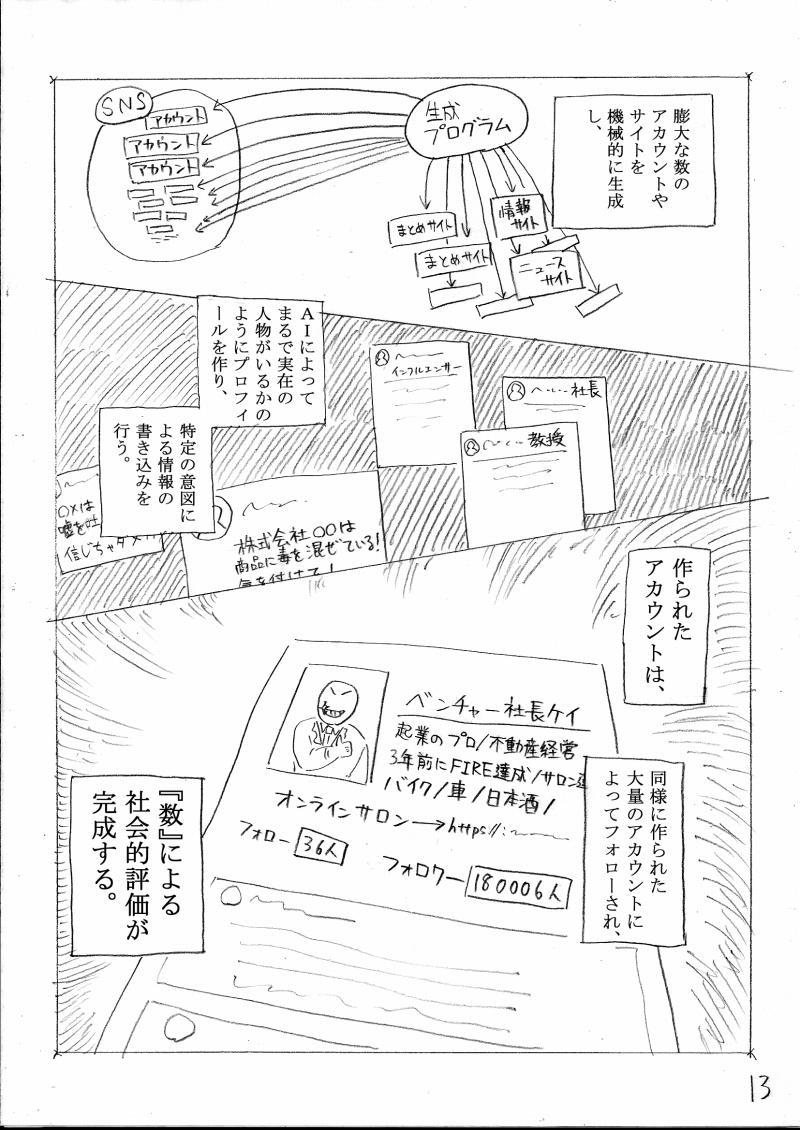 膨大な数の
アカウントや
サイトを
機械的に生成
し、
生成
プログラム
SNS
アカウント
アカウント
アカウント
情報
サイト
まとめサイト
まとめサイト
ニュース
サイト
AIによって
まるで実在の
人物がいるかの
ようにプロフィ
ールを作り、
インフルエンサー
社長
教授
特定の意図に
よる情報の
書き込みを
行う。
株式会社〇〇は
商品に毒を混ぜている!
気を付けて!
〇×は
嘘を吐
信じちゃダメ
作られた
アカウントは、
ベンチャー社長ケイ
起業のプロ/不動産経営
3年前にFIRE達成/サロン運
バイク/車/日本酒/
オンラインサロン→https//:
フォロー 36人
フォロワー 180006人
同様に作られた
大量のアカウントに
よってフォローされ、
『数』による
社会的評価が
完成する。
13